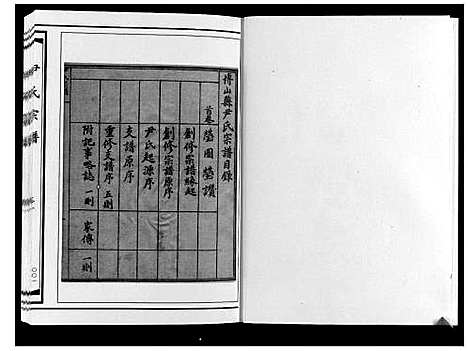 博山縣尹氏宗譜目錄
首卷 塋圖塋讚
創修宗譜緣起
創修宗譜原序
尹氏起源序
支譜原序
重修支譜序 五則
附記事略誌 一則 家傳 一則
尹氏宗譜
001